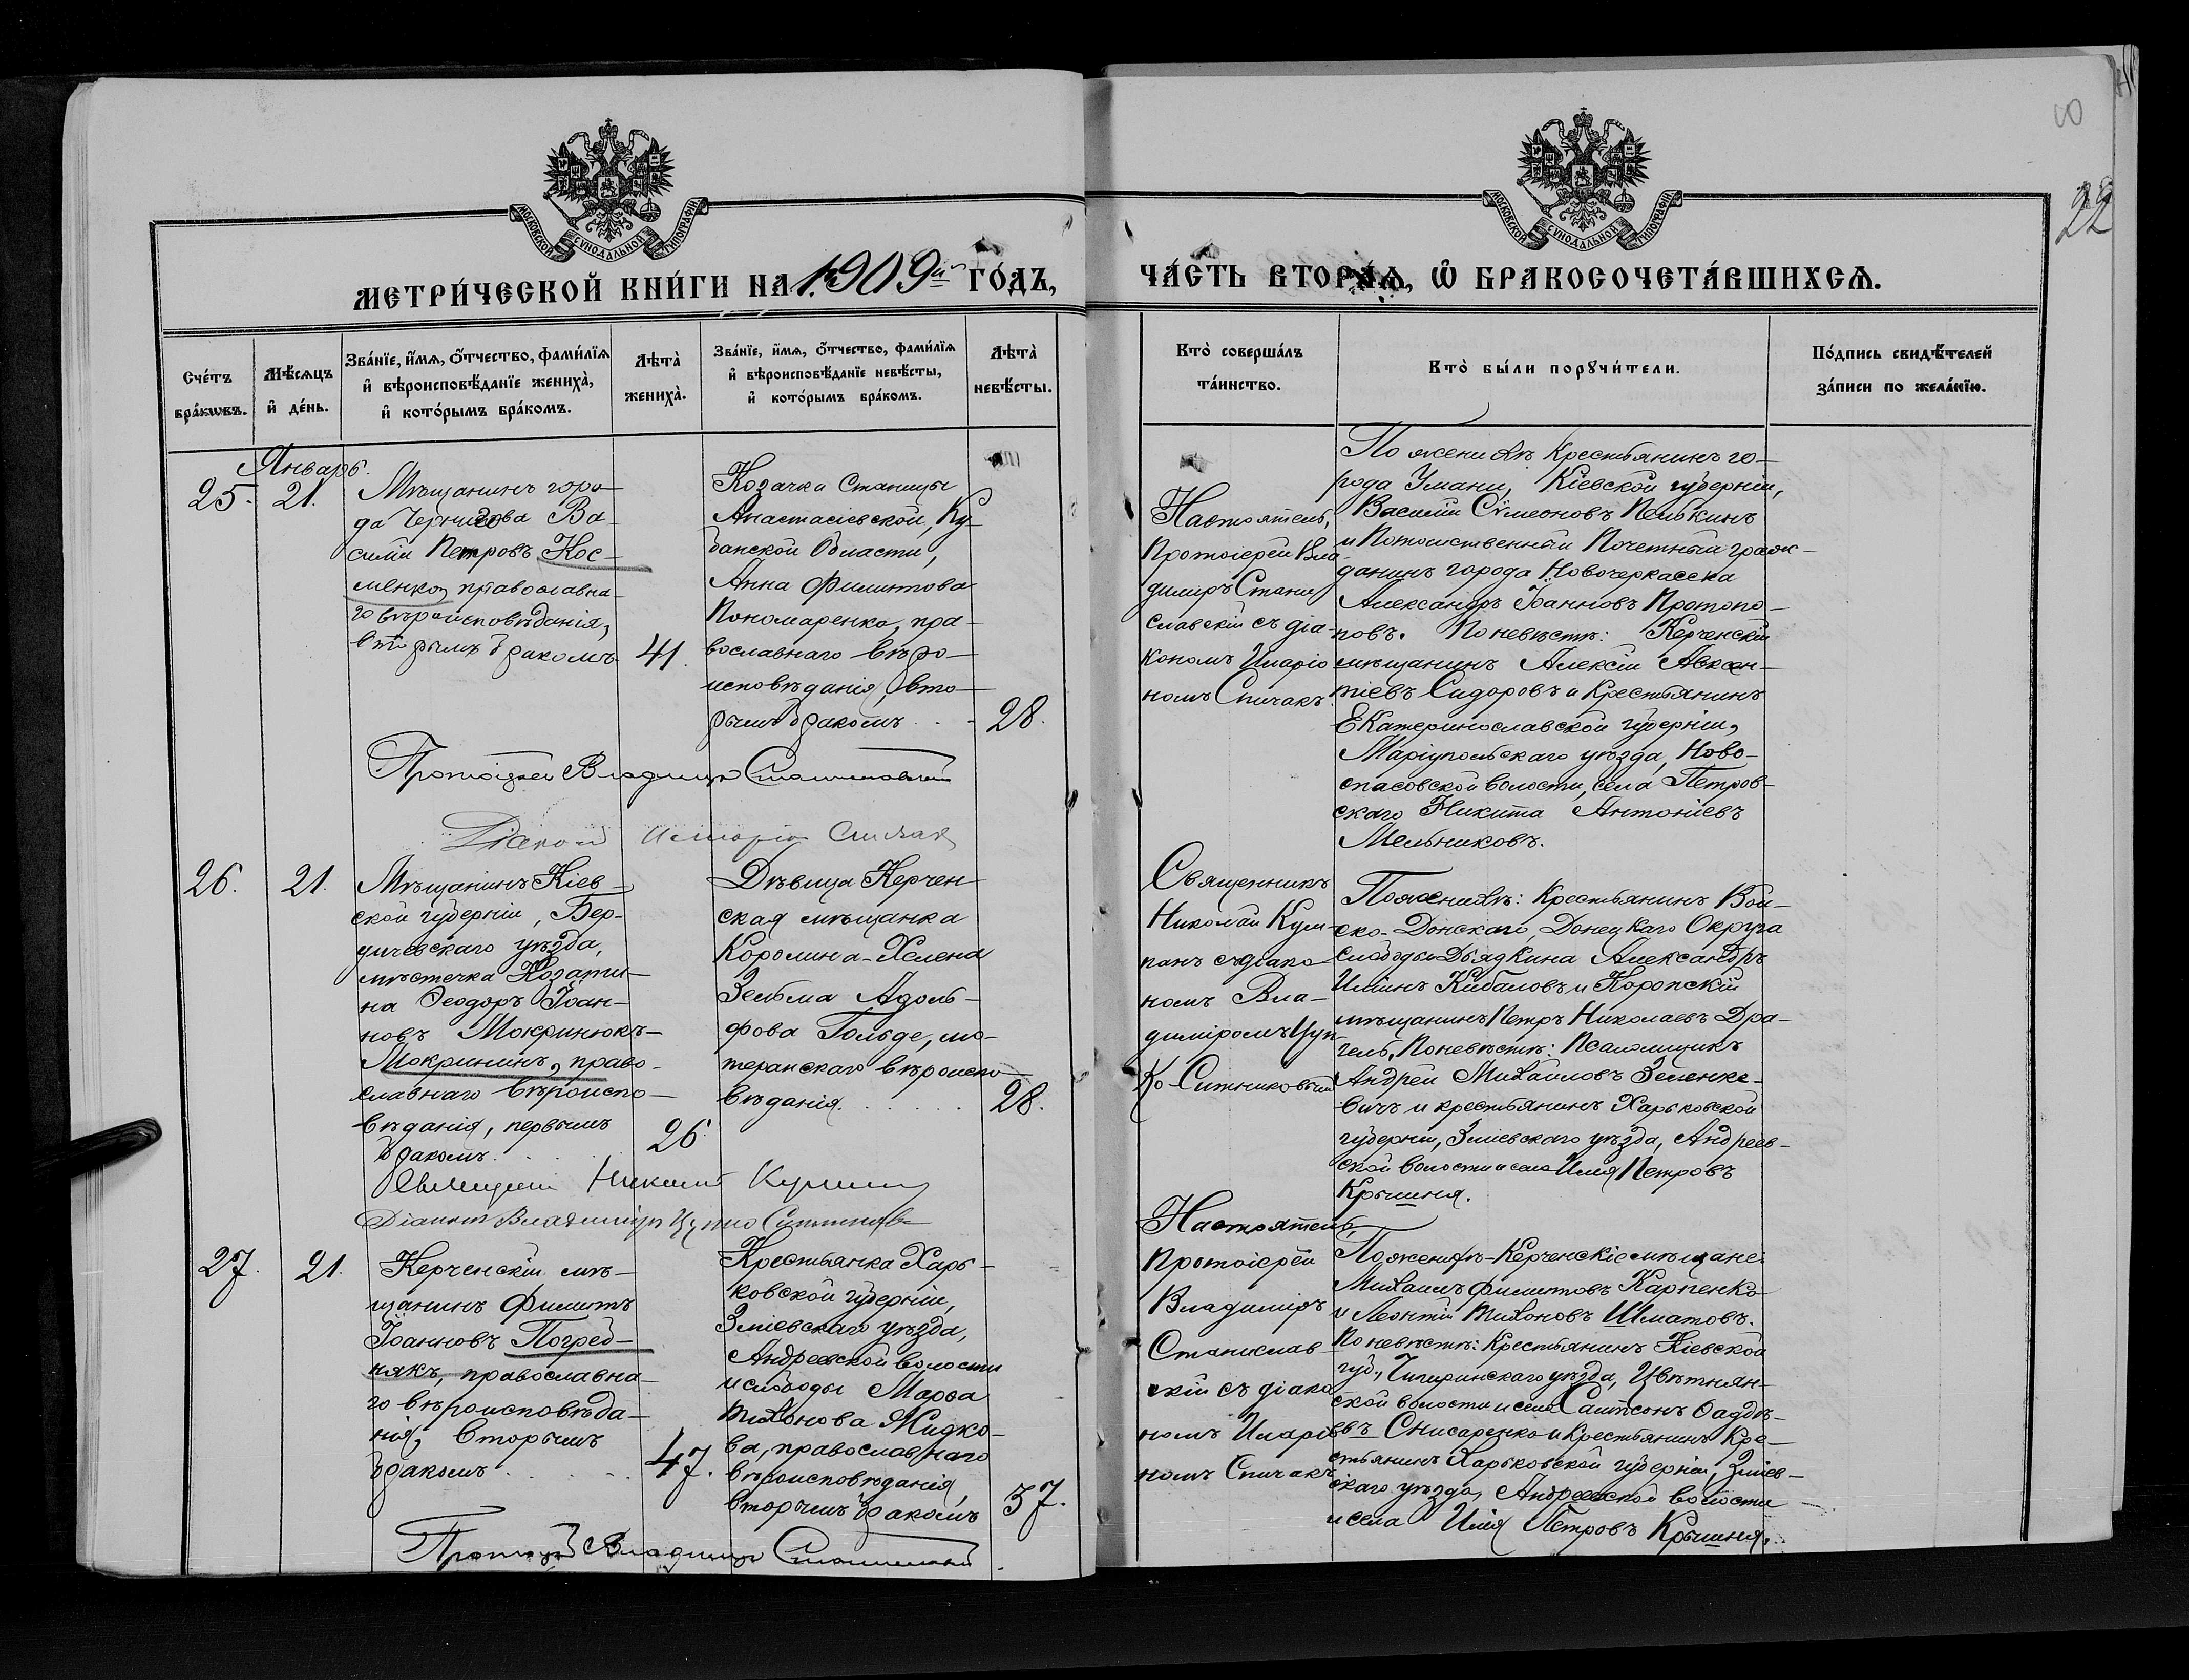 22
МОСКОВСКОЙ СУНОДАЛЬНОЙ ТИПОГРАФІИ
МОСКОВСКОЙ СУНОДАЛЬНОЙ ТИПОГРАФІИ
МЕТРИ́ЧЕСКОЙ КНИ́ГИ НА 1909й ГО́ДЪ,
ЧА́СТЬ ВТОРА́Ѧ, Ѽ БРАКОСОЧЕТА́ВШИХСѦ.
Сче́тъ
бра́кѡвъ.
Мѣ́сѧцъ
и҆ де́нь.
Зва́нїе, и҆́мѧ, ѻ҆́тчество, фами́лїѧ
и҆ вѣроисповѣ́данїе жениха̀,
и҆ кото́рымъ бра́комъ.
Лѣта̀
жениха̀.
Зва́нїе, и҆́мѧ, ѻ҆́тчество, фами́лїѧ
и҆ вѣроисповѣ́данїе невѣ́сты,
и҆ кото́рымъ бра́комъ.
Лѣта̀
невѣ́сты.
Кто̀ соверша́лъ
та́инство.
Кто̀ бы́ли порꙋчи́тели.
По́дпись свидѣ́телей
за́писи по жела́нїю.
Январь.
25.
21.
Мѣщанинъ горо-
да Чернигова Ва-
силій Петровъ Кос-
менко, православна-
го вѣроисповѣданія,
вторымъ бракомъ
41.
Козачка Станицы
Анастасіевской, Ку-
банской Области,
Анна Филиппова
Пономаренко, пра-
вославнаго вѣро-
исповѣданія, вто-
рымъ бракомъ...
28.
Настоятель,
Протоіерей Вла-
диміръ Стани-
славскій съ діа-
кономъ Иларіо-
номъ Спичакъ.
По женихѣ Крестьянинъ го-
рода Умани, Кіевской губерніи,
Василій Сѵмеоновъ Пелькинъ
и Потомственный Почетный граж-
данинъ города Новочеркасска
Александръ Іоанновъ Протопо-
повъ. По невѣстѣ: Керченскій
мѣщанинъ Алексій Авксен-
тіевъ Сидоровъ и Крестьянинъ
Екатеринославской губерніи,
Маріупольскаго уѣзда, Ново-
спасовской волости, села Петров-
скаго Никита Антоніевъ
Мельниковъ.
Протоіерей Владиміръ Станиславскій
Діаконъ Иларіонъ Спичакъ
26.
21.
Мѣщанинъ Кіев-
ской губерніи, Бер-
дичевскаго уѣзда,
мѣстечка Козати-
на Ѳеодоръ Іоан-
новъ Мокринюкъ-
Мокрининъ, право-
славнаго вѣроиспо-
вѣданія, первымъ
бракомъ...
26.
Дѣвица Керчен-
ская мѣщанка
Королина-Хелена
Зельма Адоль-
фова Гольде, лю-
теранскаго вѣроиспо-
вѣданія......
28.
Священникъ
Николай Кум-
панъ съ діако-
номъ Вла-
диміромъ Цуп-
ко-Ситниковымъ
По женихѣ: Крестьянинъ Вой-
ско-Донскаго, Донецкаго Округа
слободы Дьядкина Александръ
Иліинъ Кибаловъ и Коропскій
мѣщанинъ Петръ Николаевъ Дра-
гель, По невѣстѣ: Псаломщикъ
Андрей Михаиловъ Зеленке-
вичъ и крестьянинъ Харьковской
губерніи, Зміевскаго уѣзда, Андреев-
ской волости и села Илія Петровъ
Крышня.
Священникъ Николай Кумпанъ
Діаконъ Владиміръ Цупко Ситниковъ
27.
21.
Керченскій мѣ-
щанинъ Филиппъ
Іоанновъ Погреб-
някъ, православна-
го вѣроисповѣда-
нія, вторымъ
бракомъ......
47.
Крестьянка Харь-
ковской губерніи,
Зміевскаго уѣзда,
Андреевской волости
и слободы Марѳа
Тихонова Жидко-
ва, православнаго
вѣроисповѣданія,
вторымъ бракомъ
37.
Настоятель,
Протоіерей
Владиміръ
Станислав-
скій съ діако-
номъ Иларіо-
номъ Спичакъ
По женихѣ-Керченскіе мѣщане:
Михаилъ Филипповъ Карпенко
и Леонтій Тихоновъ Шматовъ.
По невѣстѣ: Крестьянинъ Кіевской
губ., Чигиринскаго уѣзда, Цвѣтнян-
ской волости и села Сампсонъ Ѳаддѣ-
евъ Снисаренко и Крестьянинъ Кре-
стьянинъ Харьковской губерніи, Зміев-
скаго уѣзда, Андреевской волости
и села Илія Петровъ Крышня.
Протоіерей Владиміръ Станиславскій